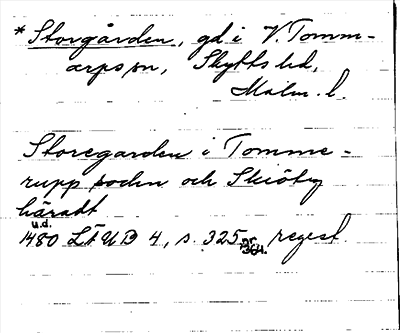 * Storgården, gd i V. Tomm-
arps sn, Skytts hd,
Malm. l.
Storegarden i Tomme-
rupp sockn och Skiöty
häradt
u.d.
1480 LÄUB 4, s. 325 nr 364. regest.